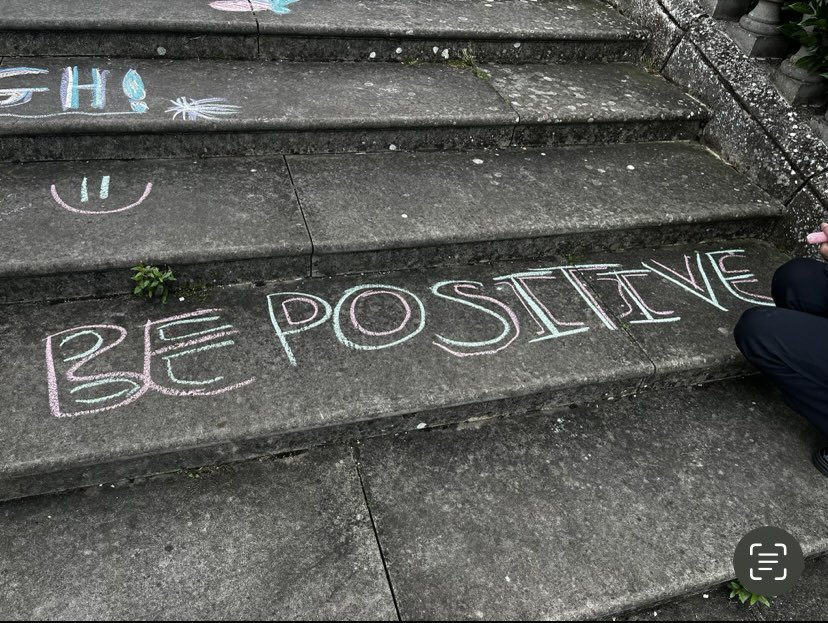 GH!
BE POSITIVE